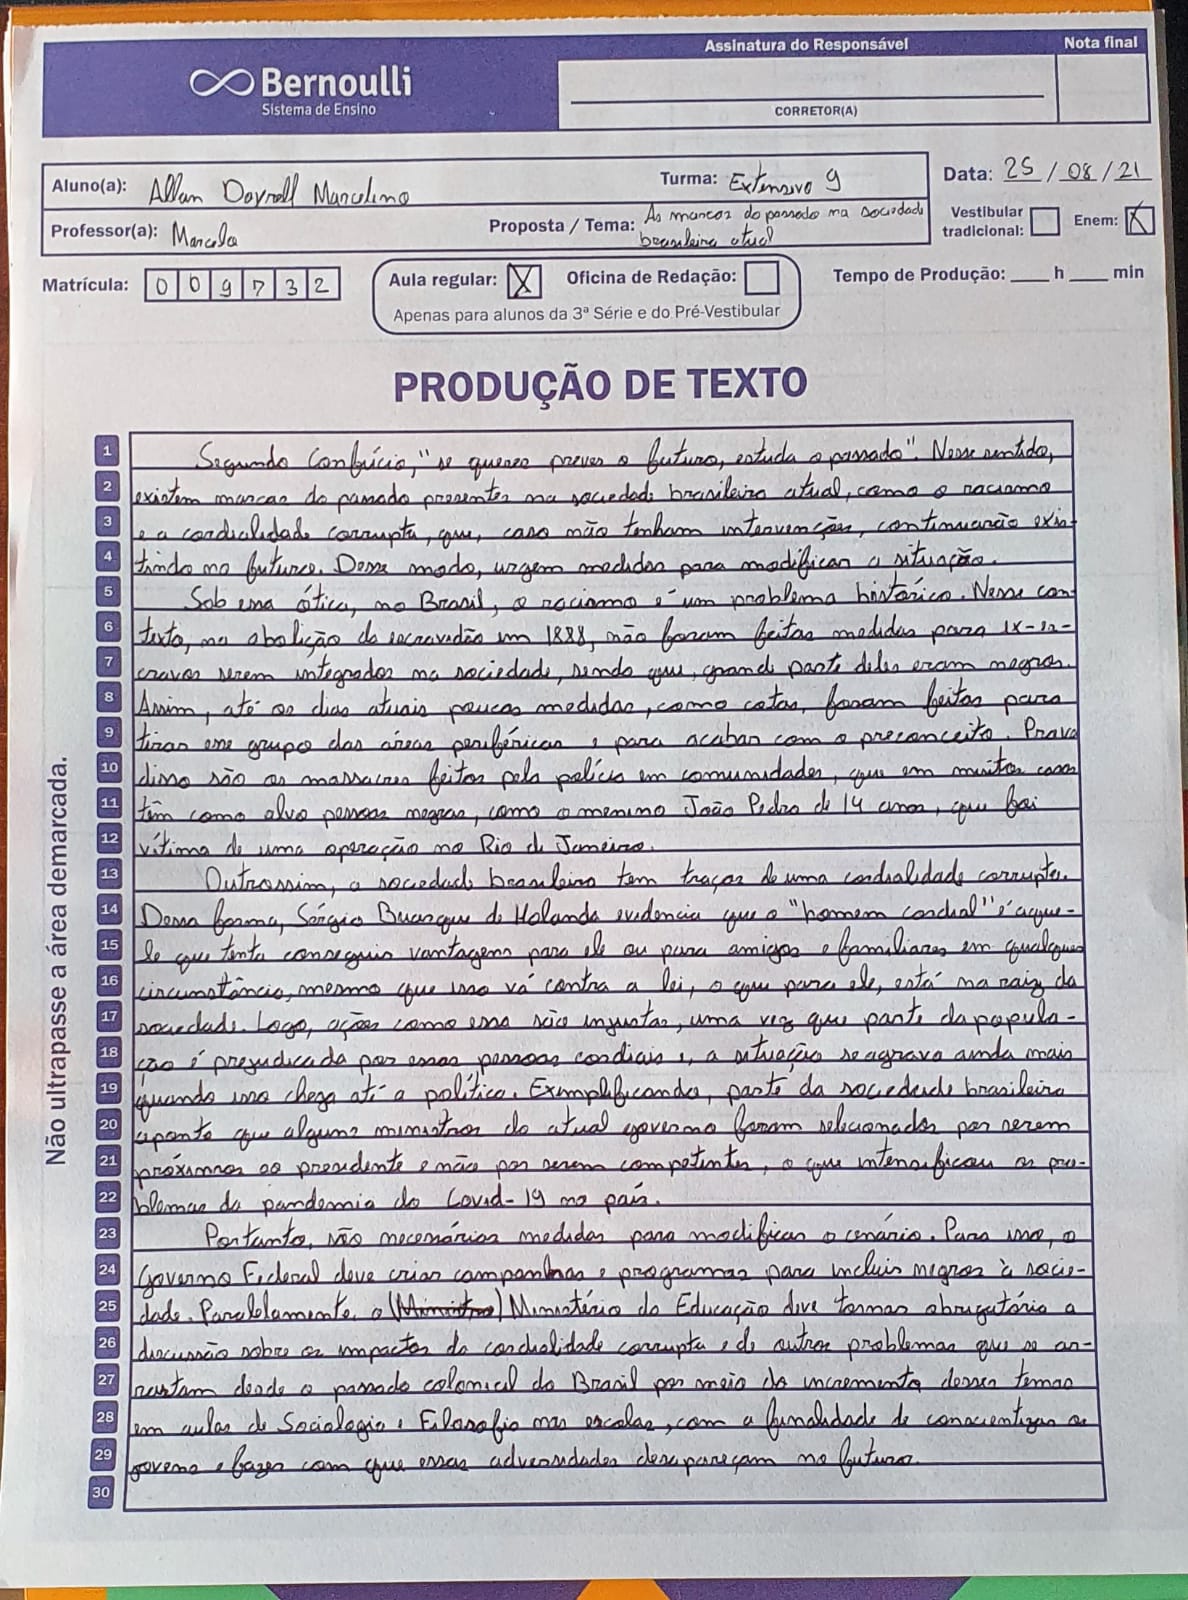 Bernoulli
Sistema de Ensino
Assinatura do Responsável
Nota final
CORRETOR(A)
Aluno(a): Allan Dayrell Marcelino
Turma: Extensivo 9
Data: 25/08/21
Professor(a): Marcela
Proposta / Tema: As marcas do passado na sociedade
brasileira atual
Vestibular
tradicional:
Enem: X
Matrícula: 009732
Aula regular: X Oficina de Redação:
Apenas para alunos da 3ª Série e do Pré-Vestibular
Tempo de Produção: ____ h ____ min
PRODUÇÃO DE TEXTO
Não ultrapasse a área demarcada.
1 Segundo Confúcio, "se queres prever o futuro, estuda o passado". Nesse sentido,
2 existem marcas do passado presentes na sociedade brasileira atual, como o racismo
3 e a cordialidade corrupta, que, caso não tenham intervenções, continuarão exis-
4 tindo no futuro. Desse modo, urgem medidas para modificar a situação.
5 Sob essa ótica, no Brasil, o racismo é um problema histórico. Nesse con-
6 texto, na abolição da escravidão em 1888, não foram feitas medidas para ex-es-
7 cravos serem integrados na sociedade, sendo que, grande parte deles eram negros.
8 Assim, até os dias atuais poucas medidas, como cotas, foram feitas para
9 tirar esse grupo das áreas periféricas e para acabar com o preconceito. Prova
10 disso são os massacres feitos pela polícia em comunidades, que em muitos casos
11 têm como alvo pessoas negras, como o menino João Pedro de 14 anos, que foi
12 vítima de uma operação no Rio de Janeiro.
13 Outrossim, a sociedade brasileira tem traços de uma cordialidade corrupta.
14 Dessa forma, Sérgio Buarque de Holanda evidencia que o "homem cordial" é aque-
15 le que tenta conseguir vantagens para ele ou para amigos e familiares em qualquer
16 circunstância, mesmo que isso vá contra a lei, o que para ele, está na raiz da
17 sociedade. Logo, ações como essa são injustas, uma vez que parte da popula-
18 ção é prejudicada por essas pessoas cordiais e, a situação se agrava ainda mais
19 quando isso chega até a política. Exemplificando, parte da sociedade brasileira
20 aponta que alguns ministros do atual governo foram selecionados por serem
21 próximos ao presidente e não por serem competentes, o que intensificou os pro-
22 blemas da pandemia do Covid-19 no país.
23 Portanto, são necessárias medidas para modificar o cenário. Para isso, o
24 Governo Federal deve criar campanhas e programas para incluir negros à socie-
25 dade. Paralelamente, o (Ministro) Ministério da Educação deve tornar obrigatória a
26 discussão sobre os impactos da cordialidade corrupta e de outros problemas que se ar-
27 rastam desde o passado colonial do Brasil por meio do incremento desses temas
28 em aulas de Sociologia e Filosofia nas escolas, com a finalidade de conscientizar os
29 jovens e fazer com que essas adversidades desapareçam no futuro.
30